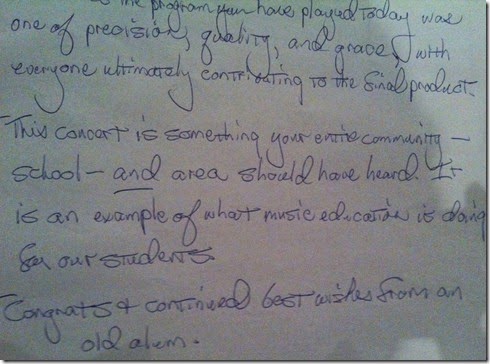 the program you have played today was
one of precision, quality, and grace, with
everyone ultimately contributing to the final product.
This concert is something your entire community –
school – and area should have heard. It
is an example of what music education is doing
for our students
Congrats & continued best wishes from an
old alum.